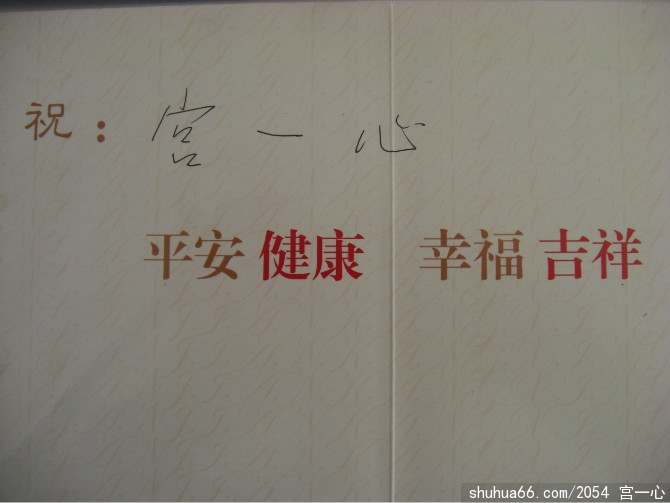 祝：宫一心
平安 健康 幸福 吉祥
shuhua66.com/2054 宫一心